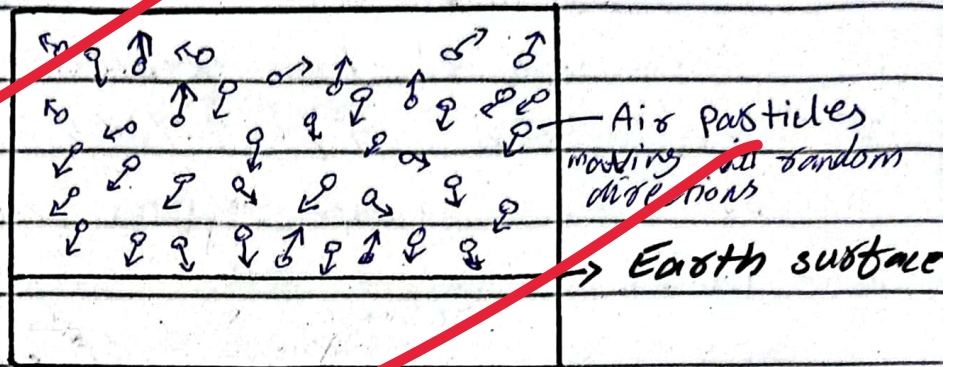 Air particles
moving random
directions
Earth surface